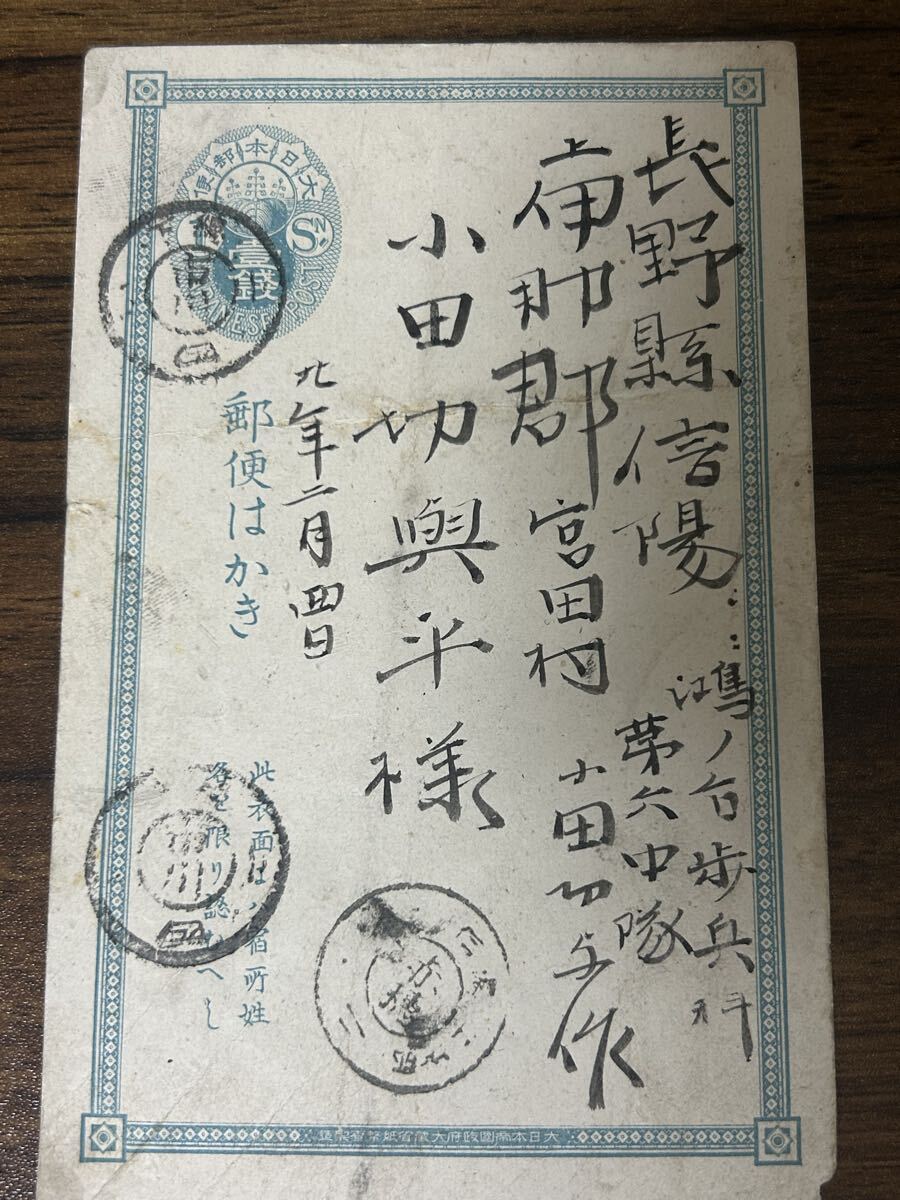 長野縣信陽
上伊那郡宮田村
小田切與平様
鴻ノ台歩兵
第六中隊
小田切与作
九年二月四日
大日本郵便
壹錢
郵便はかき
此表面は八宿所姓
名を限り認むへし
市川
大日本帝國政府大藏省紙幣寮製造